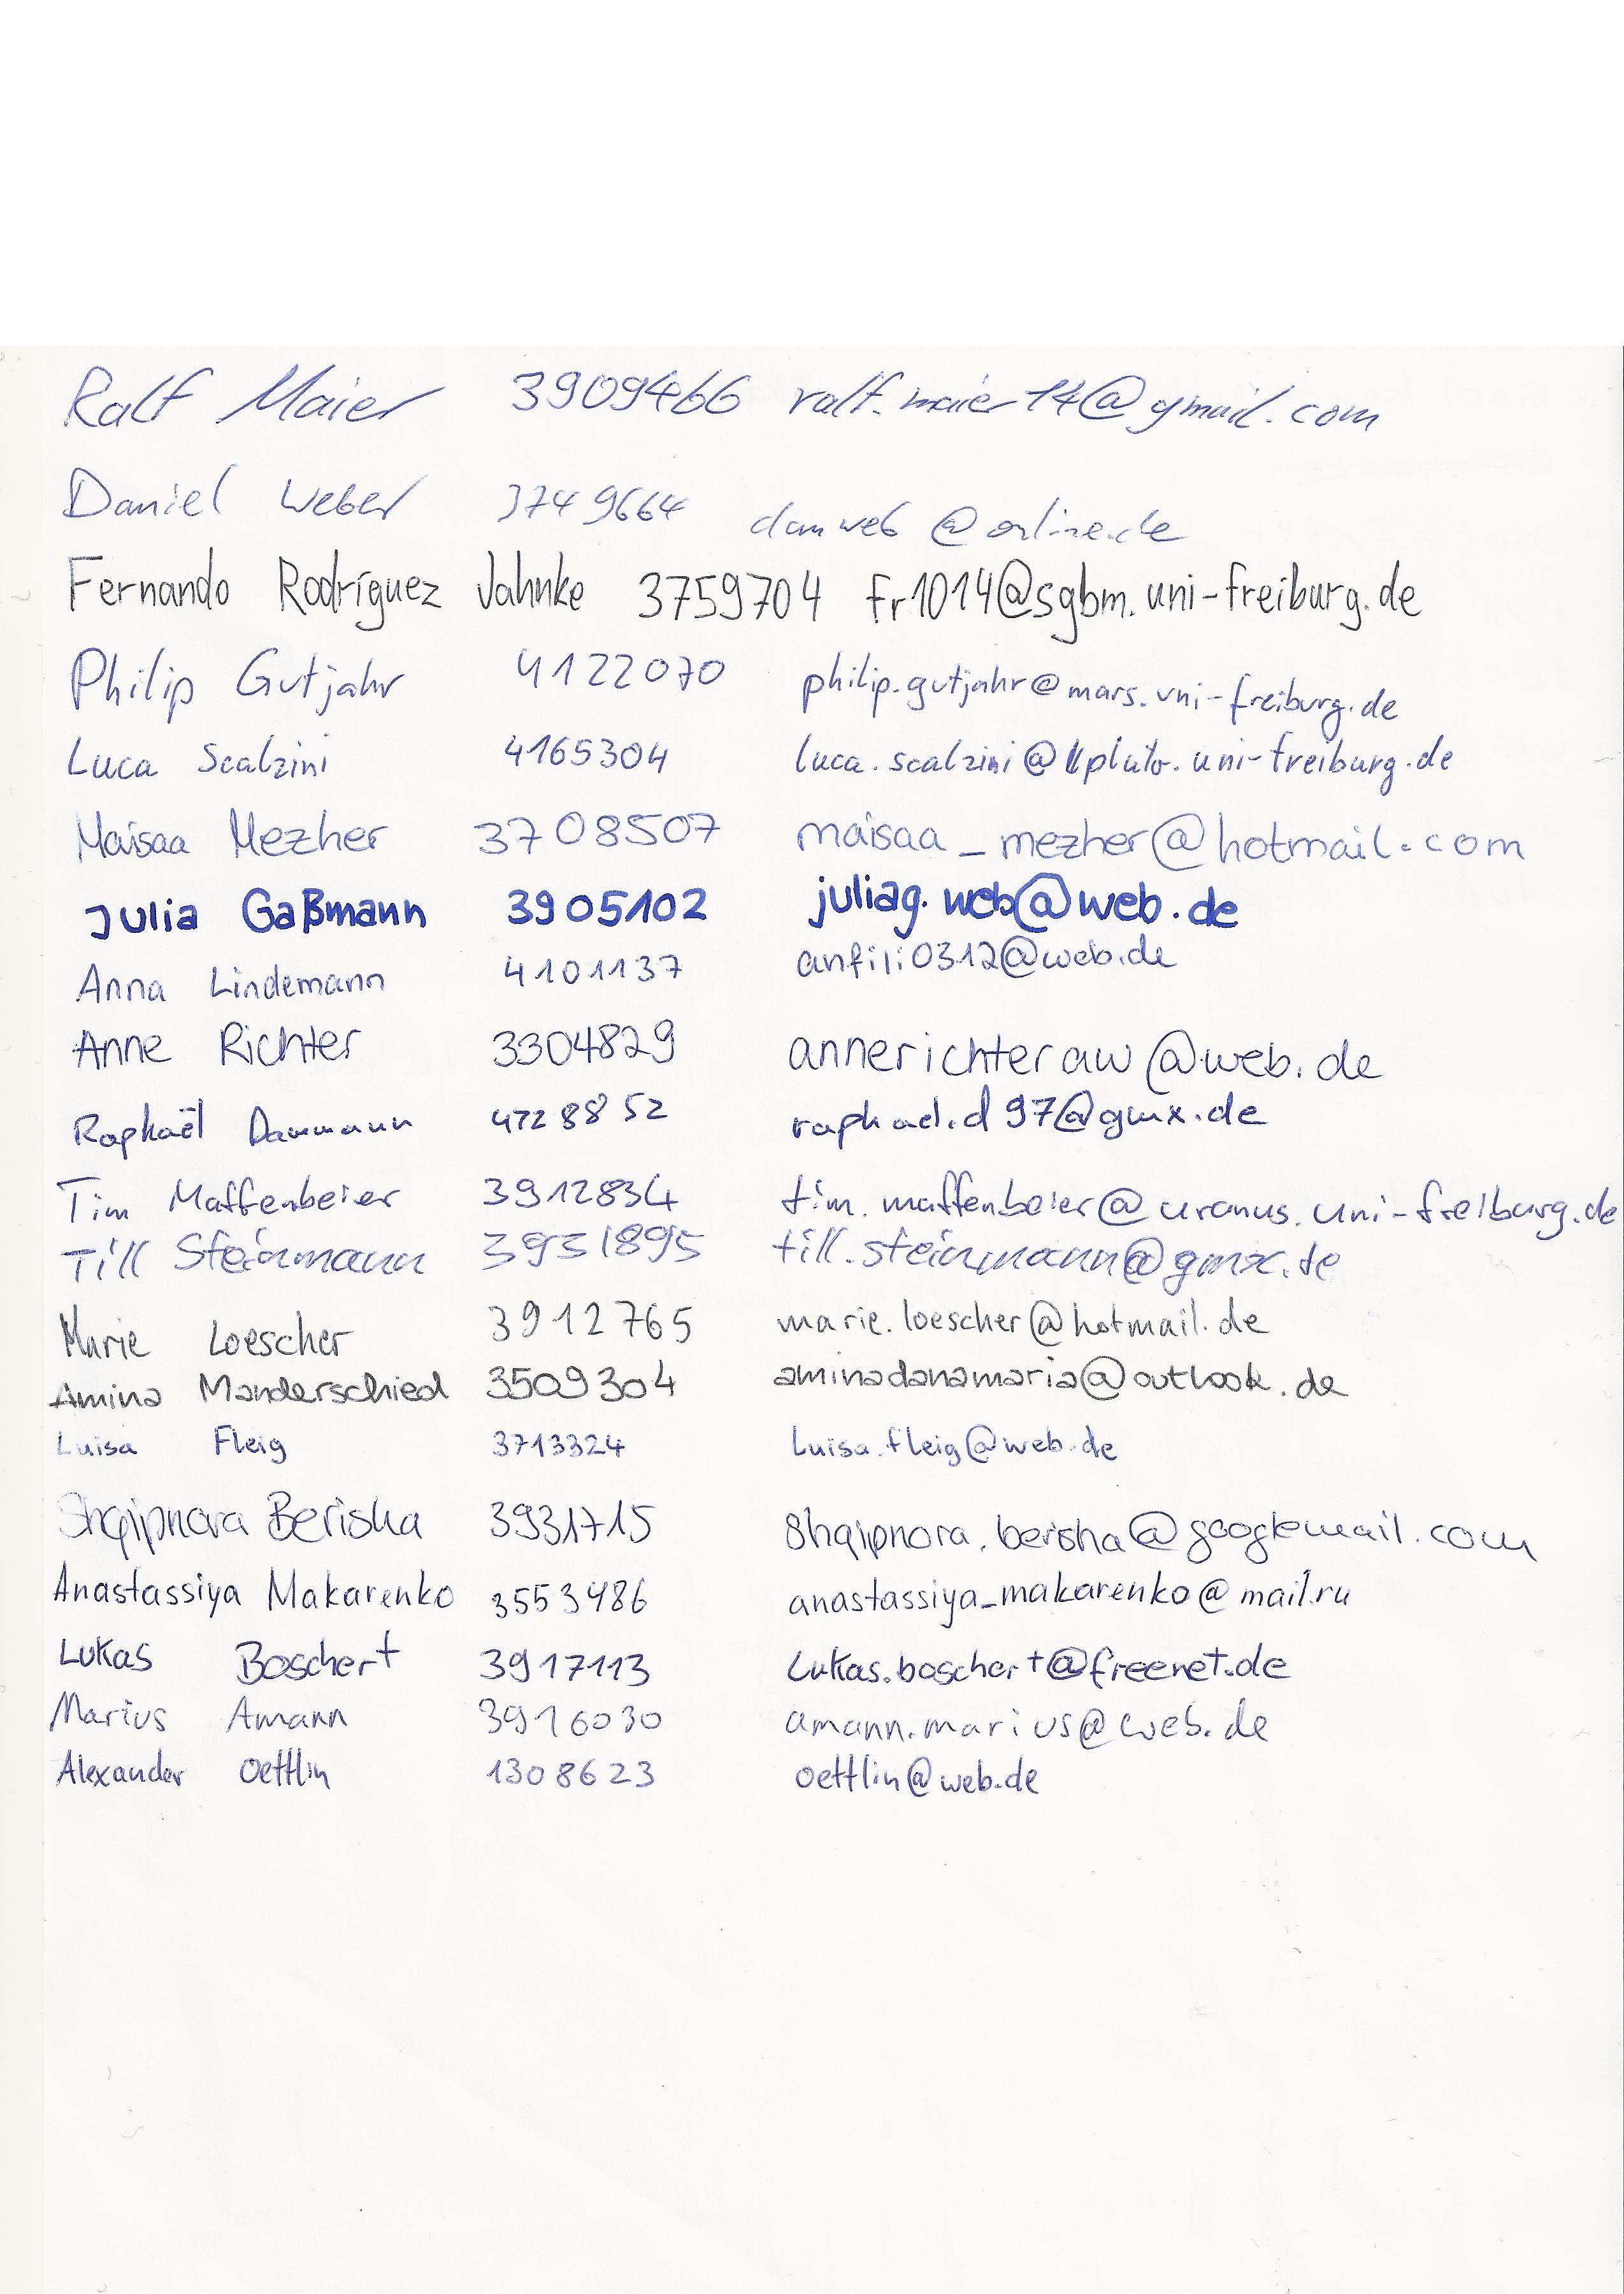 Ralf Maier 3909466 ralf.maier14@gmail.com
Daniel Weber 3749664 danweb@online.de
Fernando Rodríguez Jahnke 3759704 fr1014@sgbm.uni-freiburg.de
Philip Gutjahr 4122070 philip.gutjahr@mars.uni-freiburg.de
Luca Scalzini 4165304 luca.scalzini@pluto.uni-freiburg.de
Maisaa Mezher 3708507 maisaa_mezher@hotmail.com
Julia Gaßmann 3905102 juliag.web@web.de
Anna Lindemann 4101137 anfili0312@web.de
Anne Richter 3304829 annerichteraw@web.de
Raphaël Dammann 4728852 raphael.d97@gmx.de
Tim Maffenbeier 3912834 tim.maffenbeier@uranus.uni-freiburg.de
Till Steinmann 3931895 till.steinmann@gmx.de
Marie Loescher 3912765 marie.loescher@hotmail.de
Amina Manderschied 3509304 aminadanamaria@outlook.de
Luisa Fleig 3713324 luisa.fleig@web.de
Shqipnora Berisha 3931715 shqipnora.berisha@googlemail.com
Anastassiya Makarenko 3553486 anastassiya_makarenko@mail.ru
Lukas Boschert 3917113 Lukas.boschert@freenet.de
Marius Amann 3916030 amann.marius@web.de
Alexander Oettlin 1308623 oettlin@web.de